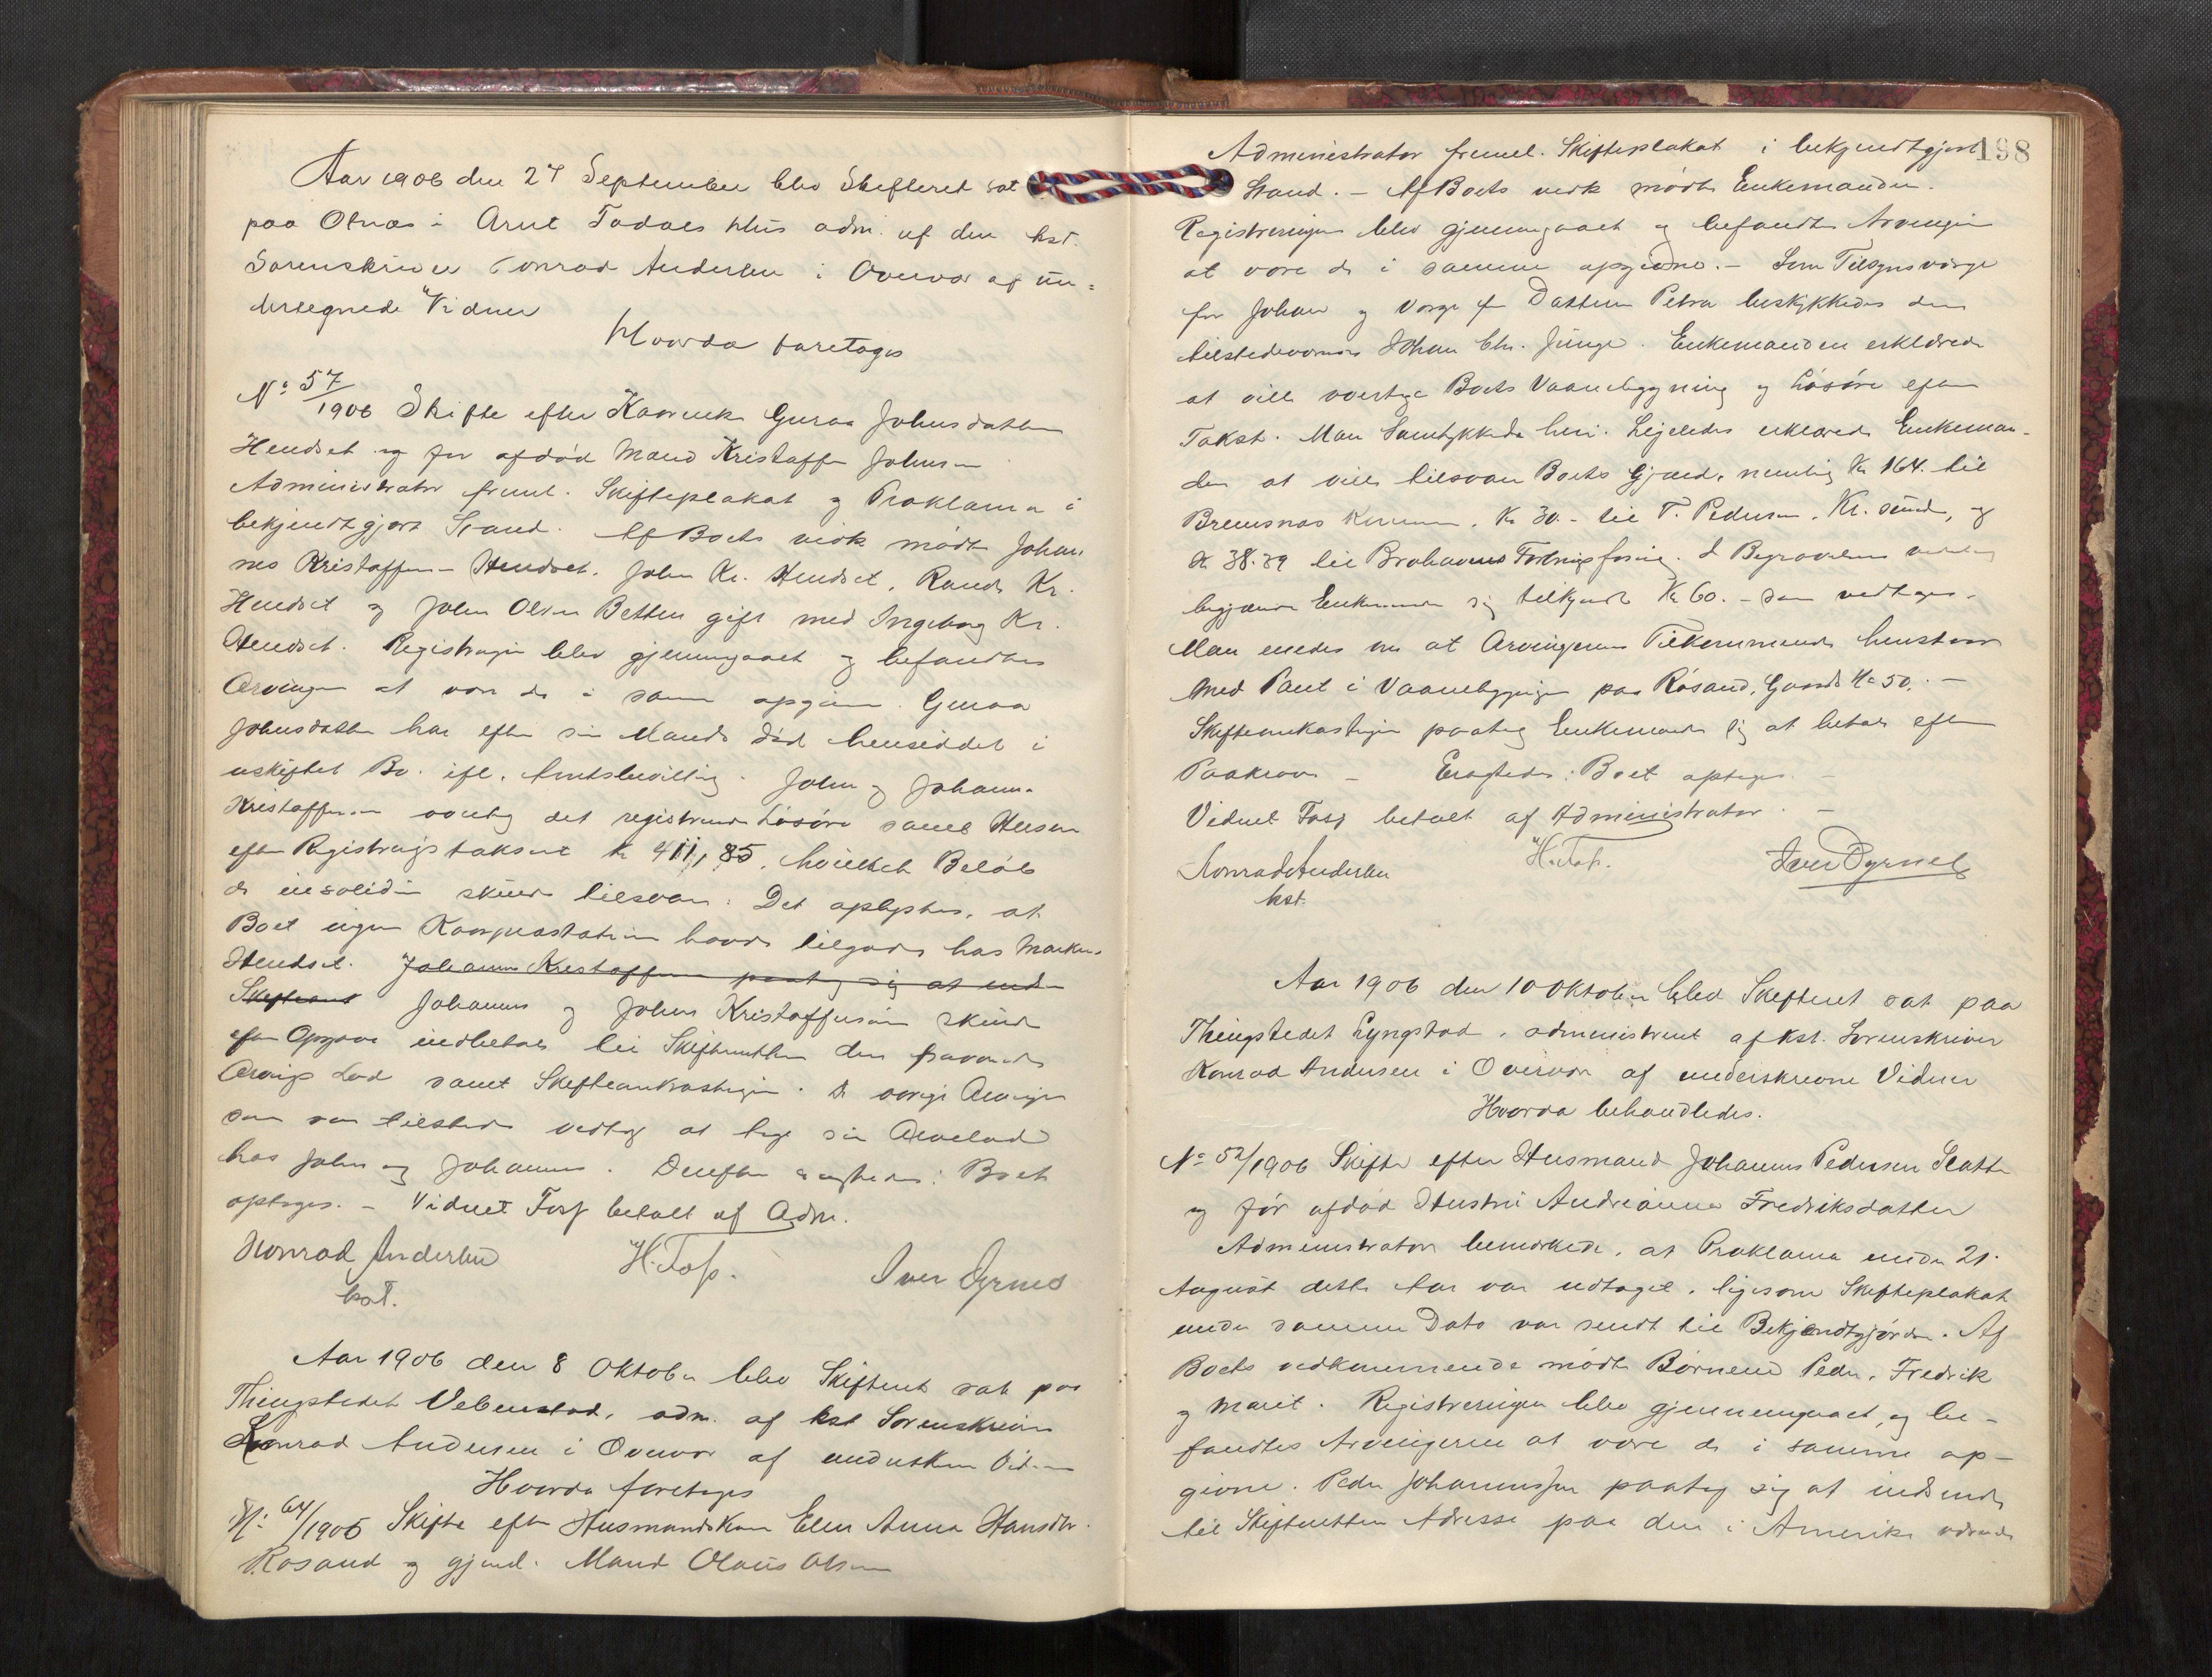 Aar 1906 den 27 September blev Skifteret sat
paa Otnæs i Arnt Todals Hus adm. af den kst.
Sorenskriver Konrad Andersen i Overvær af un-
dertegnede Vidner
Hvorda foretoges
No 57/1906 Skifte efter Kaarenke Guraa Johnsdatter
Hendset og før afdød Mand Kristoffer Johnsen
Administrator freml. Skifteplakat og Proklama i
bekjendtgjort Stand. Af Boets vedk. mødte Johan
nes Kristoffersen Hendset, John Kr. Hendset, Randi Kr.
Hendset og John Olsen Betten gift med Ingeborg Kr.
Hendset. Registreringen blev gjennemgaaet og befandtes
Arvingerne at være de i samme opgivne. Guraa
Johnsdatter har efter sin Mands Død hensiddet i
uskiftet Bo ifl. Amtsbevilling. John og Johannes
Kristoffersen overtog det registrerede Løsøre samt Husene
efter Registreringstaksten Kr 411,85, hvilket Beløb
de in solidum skulde tilsvare. Det oplystes, at
Boet ingen Kaarprestation havde tilgode hos Markus
Hendset. Johannes Kristoffersen paatog sig at ind-
Skifteomk Johannes og John Kristoffersen skulde
efter Opgave indbetale til Skifteretten den fraværende
Arvings Lod samt Skifteomkostninger. De øvrige Arvinger
som var tilstede vedtog at tage sin Arvelod
hos John og Johannes. Derefter eragtedes: Boet
optages. – Vidnet Fass betalt af Adm.
Konrad Andersen H. Fass. Iver Dyrnes
kst.
Aar 1906 den 8 Oktober blev Skifteret sat paa
Thingstedet Vebenstad, adm. af kst Sorenskriver
Konrad Andersen i Overvær af underskrevne Vidner
Hvorda foretoges
No 64/1906 Skifte efter Husmandskone Elen Anna Hansdtr.
Røsand og gjenl. Mand Olaus Olsen
198
Administrator freml. Skifteplakat i bekjendtgjort
Stand. – Af Boets vedk mødte Enkemanden.
Registreringen blev gjennemgaaet og befandtes Arvingerne
at være de i samme opgivne. – Som Tilsynsværge
for Johan og Værge for Datteren Petra beskikkedes den
tilstedeværende Johan Chr. Junge. Enkemanden erklærede
at ville overtage Boets Vaanebygning og Løsøre efter
Takst. Man samtykkede heri. Ligeledes erklærede Enkeman-
den at ville tilsvare Boets Gjæld, nemlig Kr 164. til
Bremsnæs Kommune, Kr 30.- til T. Pedersen, Kr. sund, og
Kr 38.39 til Forbrugsforening. I Begravelses
begjærede Enkemanden sig tilkjendt Kr 60. – som vedtoges.
Man enedes om at Arvingernes Tilkommende henstaar
med Pant i Vaanebygningen paa Røsand, Gaards No 50. –
Skifteomkostningerne paatog Enkemanden sig at betale efter
Paakrav – Eragtedes: Boet optages. –
Vidnet Fass betalt af Administrator. –
Konrad Andersen H. Fass. Iver Dyrnes
kst.
Aar 1906 den 10 Oktober blev Skifteret sat paa
Thingstedet Lyngstad, administreret af kst. Sorenskriver
Konrad Andersen i Overvær af underskrevne Vidner
Hvorda behandledes.
No 52/1906 Skifte efter Husmand Johannes Pedersen Slatte
og før afdød Hustru Andrianna Fredriksdatter
Administrator bemærkede, at Proklama under 21.
August dette Aar var udtaget, ligesom Skifteplakat
under samme Dato var sendt til Bekjendtgjørelse. Af
Boets vedkommende mødte Børnene Peder, Fredrik
og Marit. Registreringen blev gjennemgaaet, og be-
fandtes Arvingerne at være de i samme op-
givne. Peder Johannessen paatog sig at indsende
til Skifteretten Adresse paa den i Amerika værende